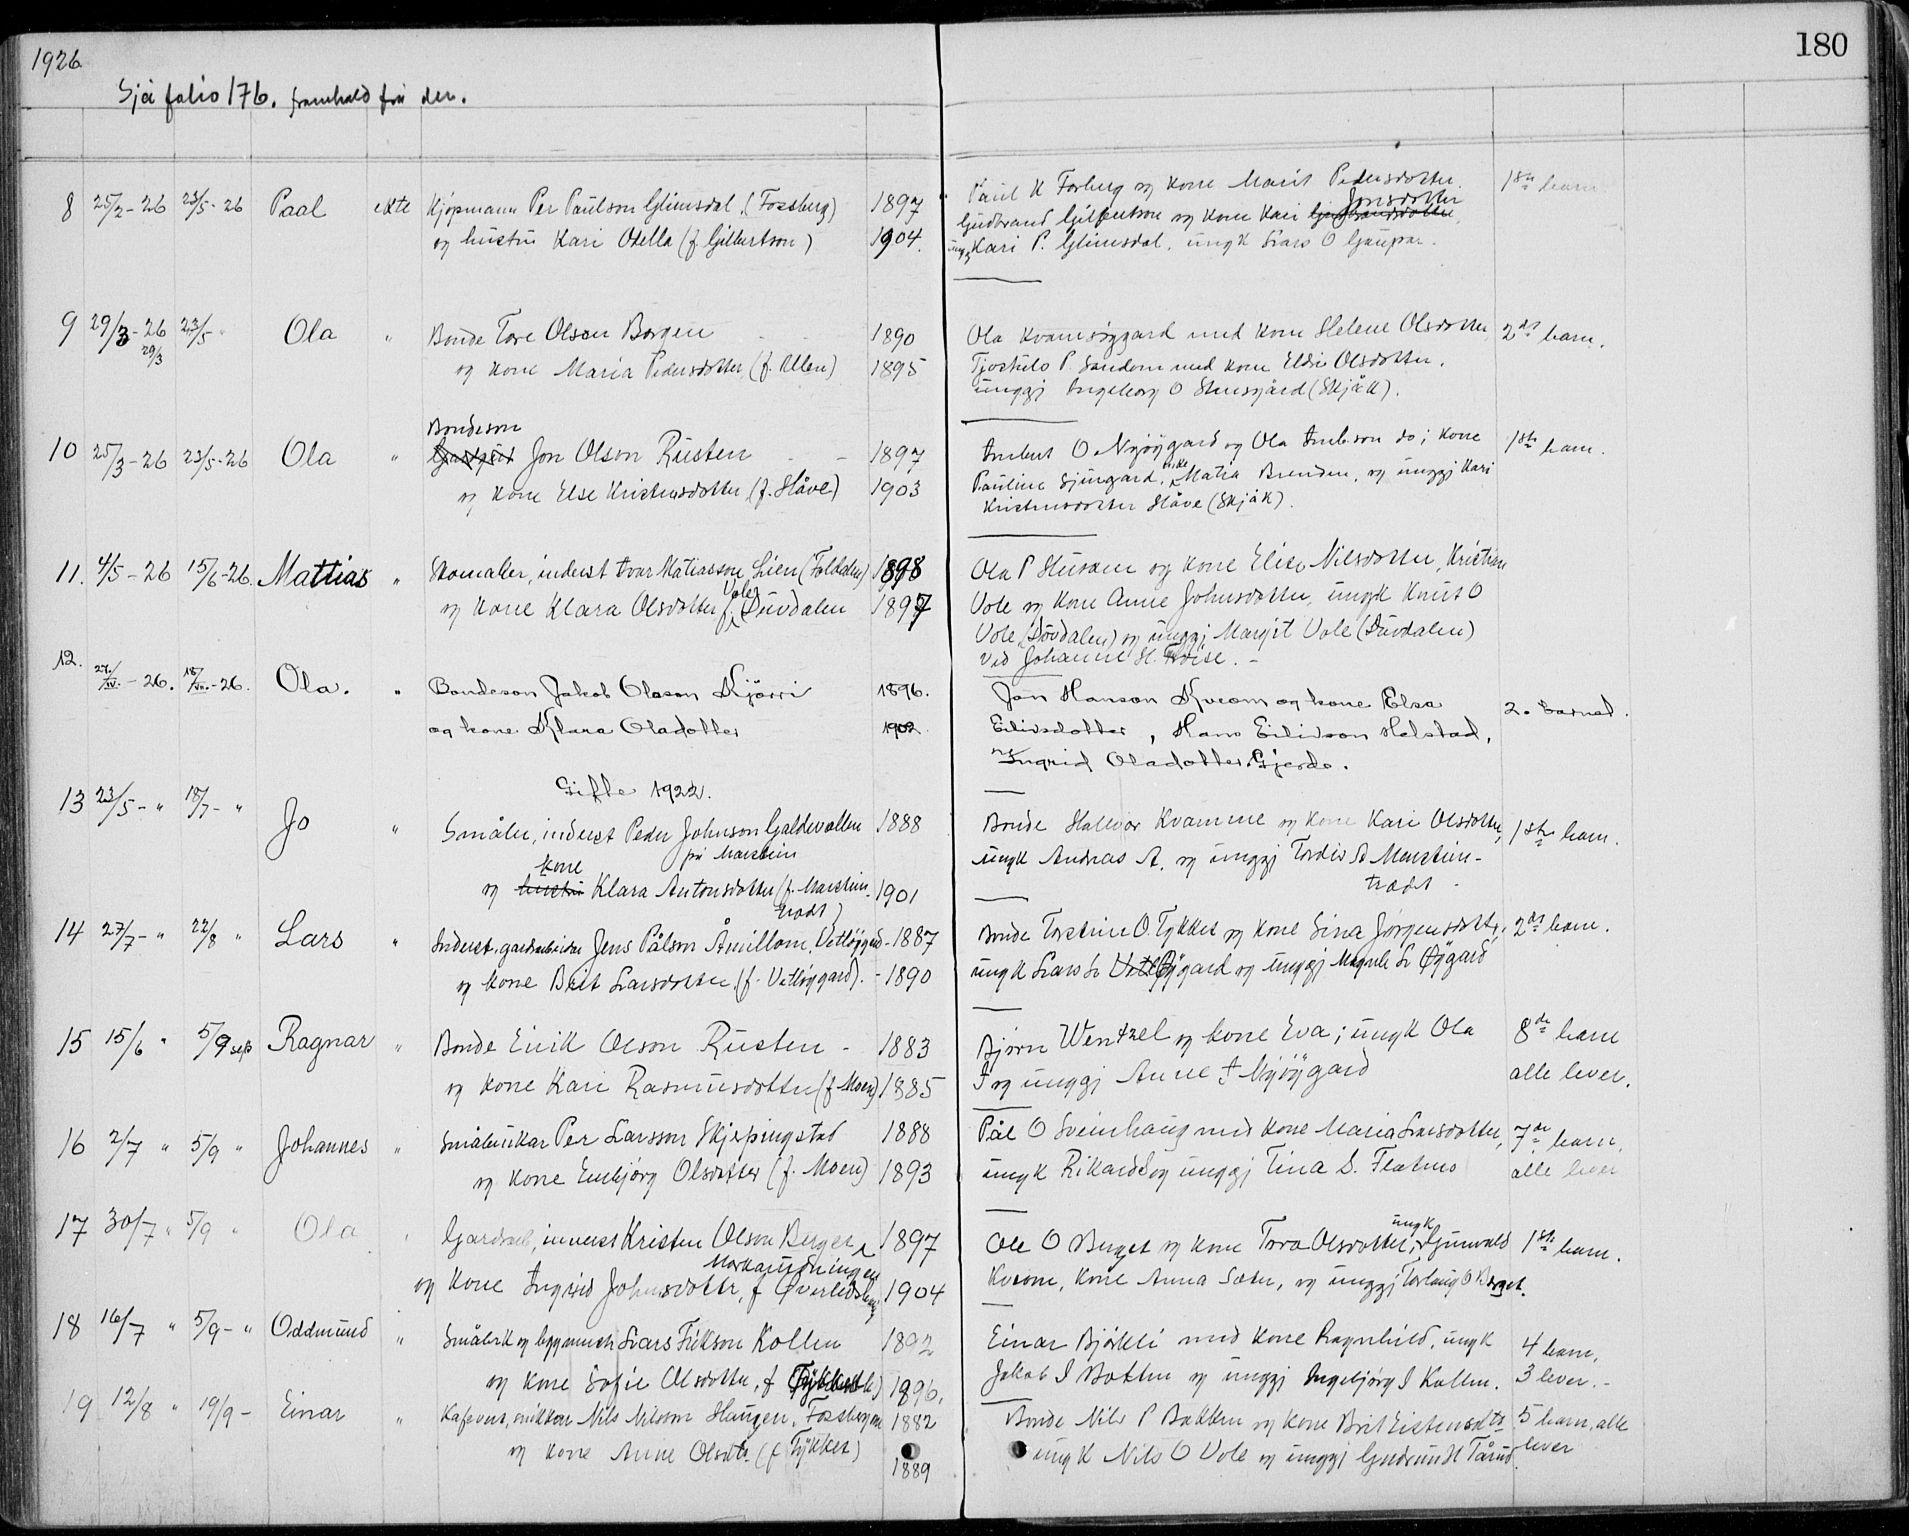 1926
180
Sjå folio 176. framhald frå der.
8 25/2-26 23/5-26 Paal ekte Kjøpmann Per Paulson Glimsdal (Fossberg) 1897
og hustru Kari Otella (f. Gilbertson) 1904.
Paul K Forberg og kone Marit Pedersdotter. 1ste barn
Jonsdotter
Gudbrand Gilbertson og kone Kari
ungkj Kari P. Glimsdal, ungk Lars O Gaupar.
9 29/3-26 23/5 " Ola " Bonde Tore Olson Borgen 1890
29/3
og kone Maria Pedersdotter (f. Ullen) 1895
Ola Kvamsøygard med kone Helene Olsdotter, 2det barn.
Tjostulo P. Sandom med kone Eldri Olsdotter.
unggj Ingeborg O Stensgård (Skjåk).
Bondeson
10 25/3-26 23/5-26 Ola " Jon Olson Rusten 1897
og kone Else Kristensdotter (f. Håve) 1903
O. Nyøygard og Ola do; kone 1ste barn.
Pauline enke Matia Brenden, og unggj Kari
Kristensdotter Håve (Skjåk).
11. 4/5-26 15/6-26. Mattias " Skomaker, inderst Ivar Matiasson Lien (Folldalen) 1898
og kone Klara Olsdotter f. Vole, Duvdalen 1897
Ola P Husom og kone Elise Nilsdotter, Kristian
Vole og kone Anne Johnsdotter, ungk Knut O
Vole (Døvdalen) og unggj Margit Vole (Duvdalen)
ved Johanne H.
12. 27./IV.-26. 18/VII.-26. Ola. " Bondeson Jakob Olason Kjørri 1896.
og kone Klara Oladotter 1902.
Jon Hanson Kveom og kone Elsa
Eilivsdotter, Hans Eilivson Helstad, 2. barnet.
og Ingrid Oladotter Gjerde.
Gifte 1922.
13 23/5-" 18/7-" Jo " Småbr, inderst Peder Johnson Galdevollen 1888
frå Marstein
kone
og hustru Klara Antonsdotter (f. Marstein- 1901
trædt)
Bonde Hallvor Kvamme og kone Kari Olsdotter, 1ste barn.
ungk Andreas A. og unggj Tordis A Marstein-
trædt -
14 27/7-" 22/8 " Lars " Inderst, gardarbeider Jens Pålson Åmillom, Vetløygard - 1887
og kone Brit Larsdotter (f. Vetløygard). - 1890
Bonde Torstein O. Tykket og kone Sina Jørgensdotter. 2det barn.
ungk Lars L Vetløygard og unggj Magnh L Øygard
15 15/6 " 5/9 sep Ragnar " Bonde Eirik Olson Rusten - 1883
og kone Kari Rasmusdotter (f Moen) 1885
Bjørn Wentzel og kone Eva; ungk Ola 8de barn
I og unggj Anne I Nyøygard alle lever.
16 2/7 " 5/9 " Johannes " Småbrukar Per Larsson Skjepingstad 1888
og kone Embjørg Olsdotter (f. Moen) 1893
Pål O Sveinhaug med kone Maria Larsdotter, 7de barn,
ungk Rikard S og unggj Tina S. Flatmo alle lever
17 30/7 " 5/9 " Ola " Gardarb, inderst Kristen Olson Berget 1897
og kone Ingrid Johnsdottr, f Øverlids 1904
Ole O Berget og kone Tora Olsdotter, ungk Gunvald 1ste barn.
Kveom, kone Anna Sæter, og unggj Torlaug O Berget.
18 16/7 " 5/9-" Oddmund " Småbrk og byggmester Lars Eirikson Kollen 1892
og kone Sofie Olsdotter, f 1896.
Einar Bjørkli med kone Ragnhild, ungk 4 barn,
Jakob I Botten og unggj Ingebjørg I Kollen. 3 lever.-
19 12/8 " 19/9- Einar " Kafevert, snikkar Nils Nilsson Haugen, Fossbergom 1882
og kone Anne Olsdtr. (f Tykket) 1889
Bonde Nils P Bakken og kone Brit Eistensdtr 5 barn, alle
ungk Nils O Vole og unggj Gudrun H Tårud. lever